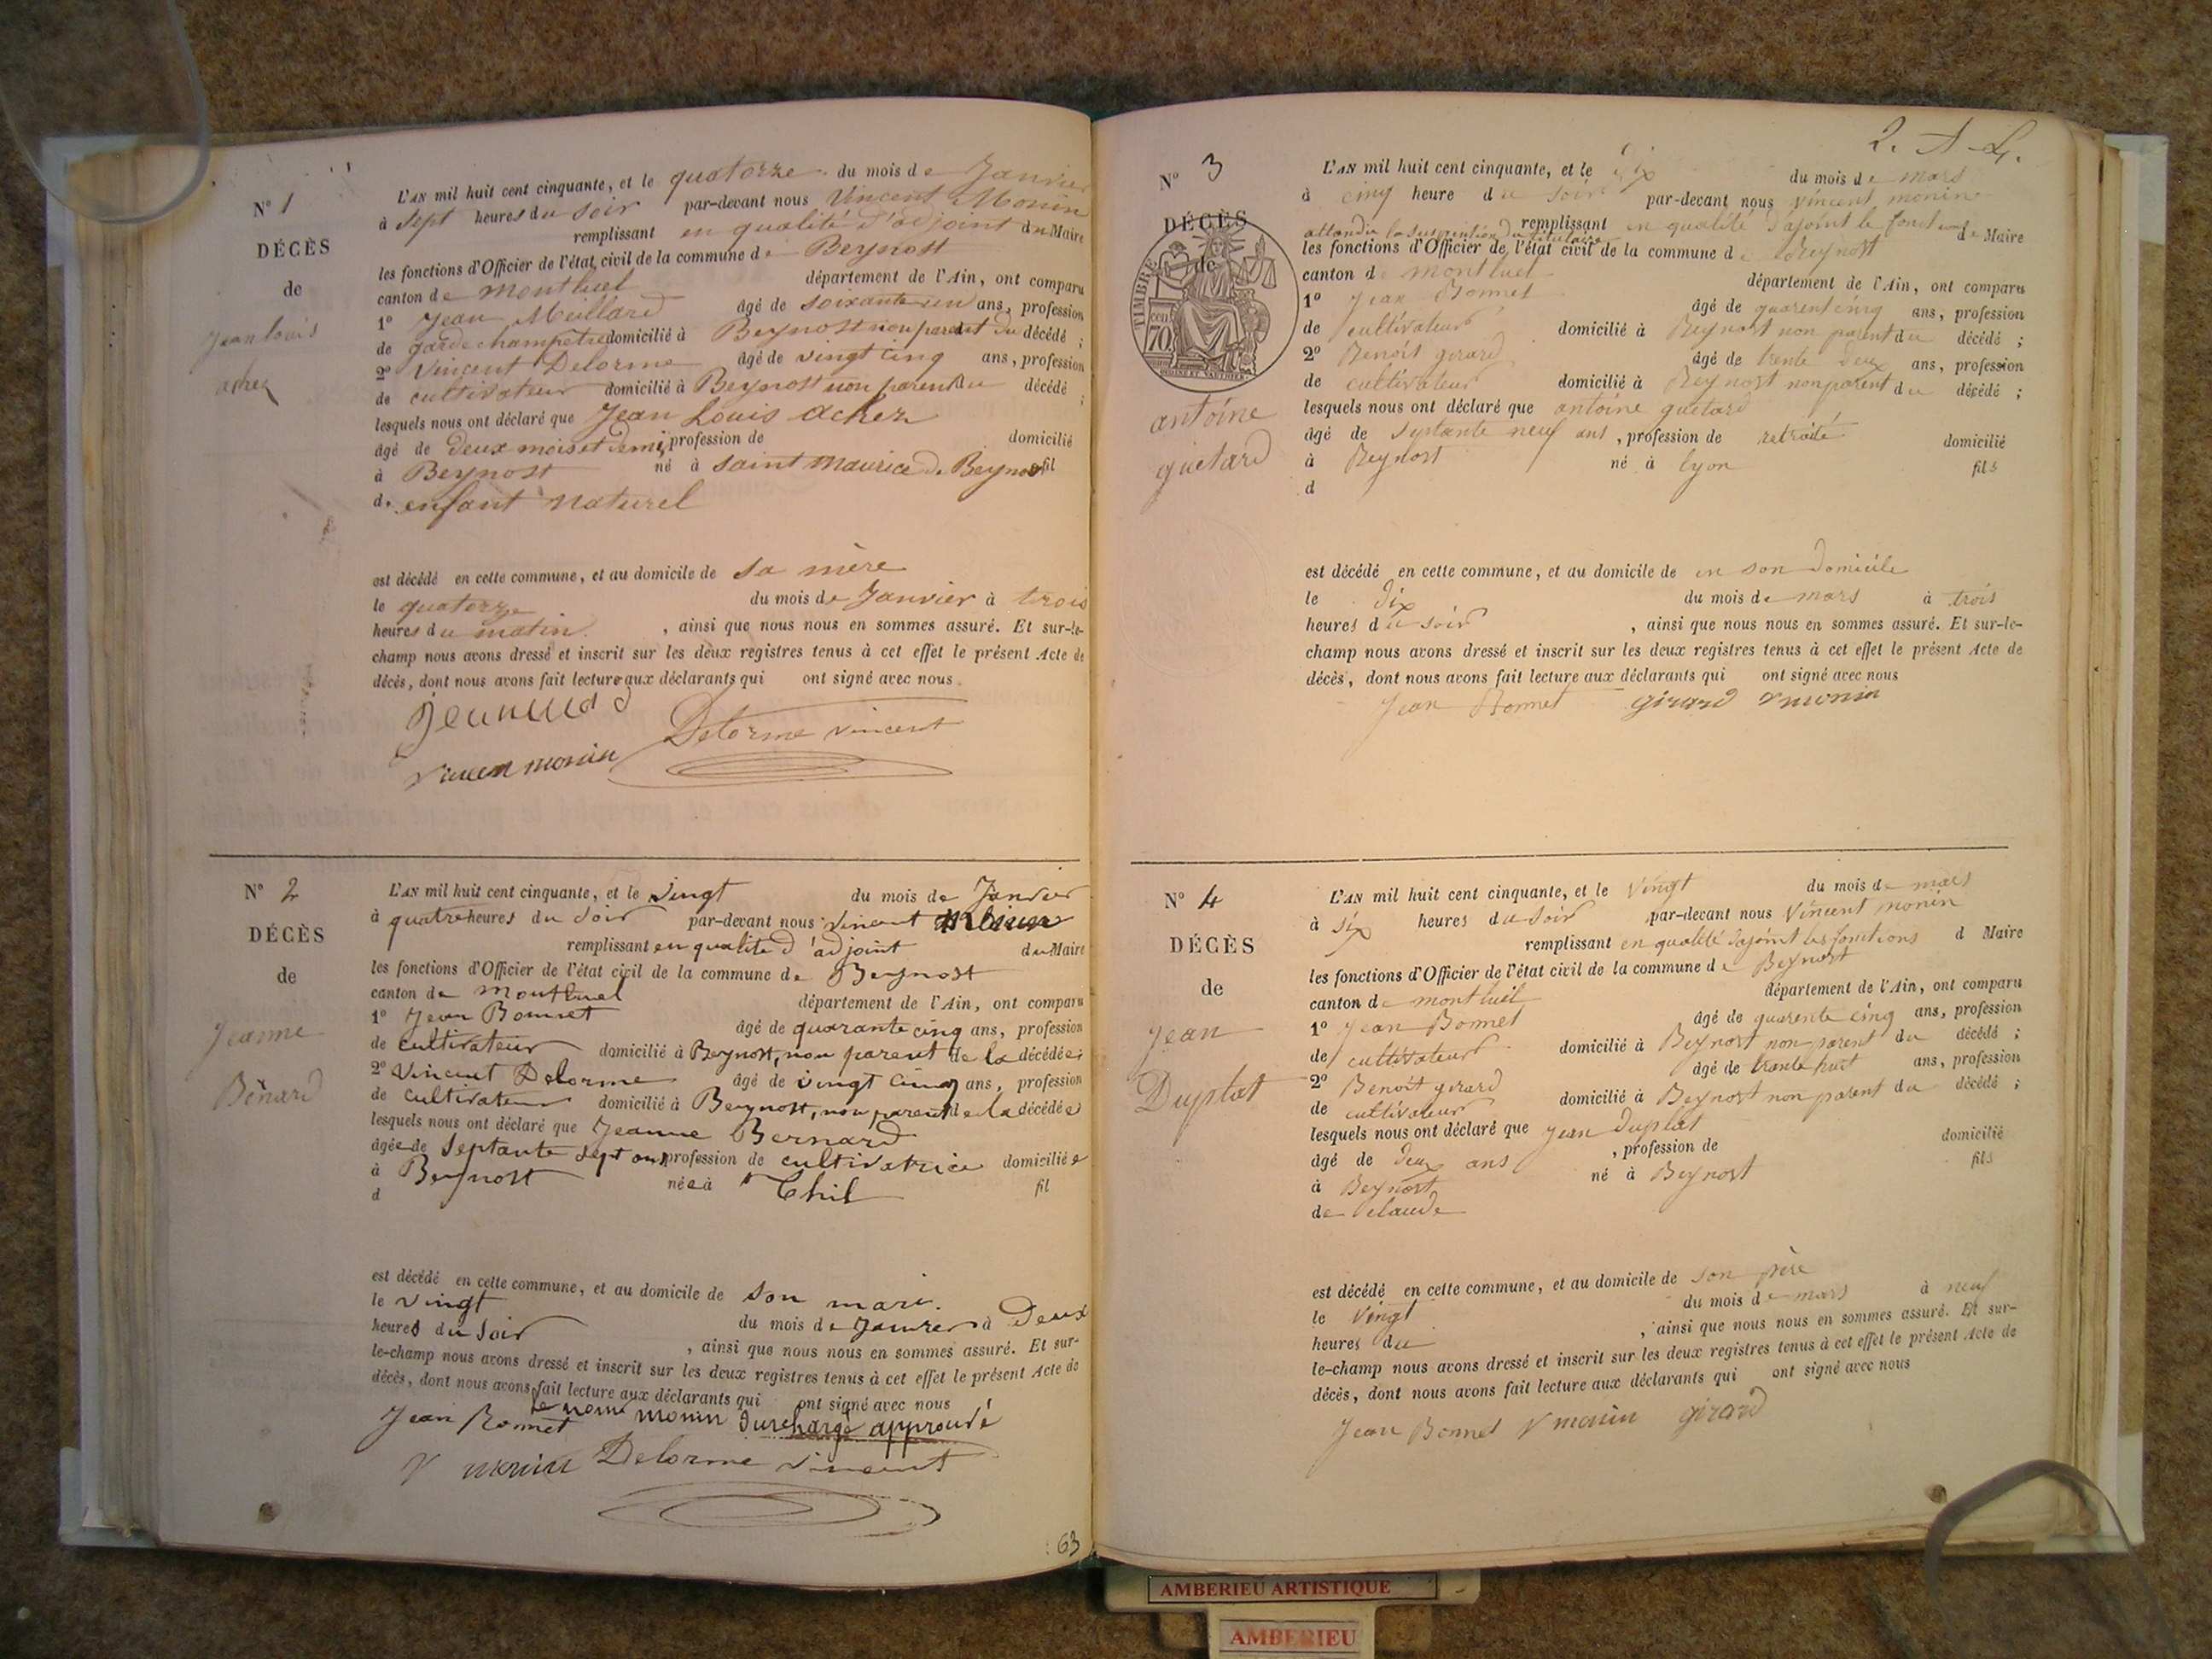 N° 1
DÉCÈS
de
Jean Louis
acher
L'AN mil huit cent cinquante, et le quatorze du mois de Janvier
à Sept heures du Soir par-devant nous Vincent Monin
remplissant en qualité d'adjoint du Maire
les fonctions d'Officier de l'état civil de la commune de Beynost
canton de Montluel département de l'Ain, ont comparu
1° Jean Meillard âgé de soixante un ans, profession
de garde champêtre domicilié à Beynost non parent du décédé ;
2° Vincent Delorme âgé de vingt cinq ans, profession
de cultivateur domicilié à Beynost non parent du décédé ;
lesquels nous ont déclaré que Jean Louis acher
âgé de deux mois et demi, profession de domicilié
à Beynost né à saint Maurice de Beynost fil
d. enfant naturel
est décédé en cette commune, et au domicile de sa mère
le quatorze du mois de Janvier à trois
heures du matin , ainsi que nous nous en sommes assuré. Et sur-le-
champ nous avons dressé et inscrit sur les deux registres tenus à cet effet le présent Acte de
décès, dont nous avons fait lecture aux déclarants qui ont signé avec nous.
Delorme vincent
monin
N° 2
DÉCÈS
de
Jeanne
Bénard
L'AN mil huit cent cinquante, et le vingt du mois de Janvier
à quatre heures du soir par-devant nous vincent monin
remplissant en qualité d'adjoint du Maire
les fonctions d'Officier de l'état civil de la commune de Beynost
canton de Montluel département de l'Ain, ont comparu
1° Jean Bonnet âgé de quarante cinq ans, profession
de cultivateur domicilié à Beynost, non parent de la décédée;
2° Vincent Delorme âgé de vingt cinq ans, profession
de cultivateur domicilié à Beynost, non parent de la décédée
lesquels nous ont déclaré que Jeanne Bernard
âgée de Septante sept ans profession de cultivatrice domiciliée
à Beynost née à Thil fil
d
est décédé en cette commune, et au domicile de son mari.
le vingt du mois de Janvier à Deux
heures du soir , ainsi que nous nous en sommes assuré. Et sur-
le-champ nous avons dressé et inscrit sur les deux registres tenus à cet effet le présent Acte de
décès, dont nous avons fait lecture aux déclarants qui ont signé avec nous
Jean Bonnet le nom monin surchargé approuvé
V monin Delorme vincent
63
2.
N° 3
DÉCÈS
de
TIMBRE
cen. 70
antoine
guetard
L'AN mil huit cent cinquante, et le dix du mois de mars
à cinq heure du soir par-devant nous vincent monin
attandu la suspention du titulaire remplissant en qualité d'ajoint le fonctions de Maire
les fonctions d'Officier de l'état civil de la commune de Beynost
canton de montluel département de l'Ain, ont comparu
1° Jean Bonnet âgé de quarent cinq ans, profession
de cultivateur domicilié à Beynost non parent du décédé ;
2° Benoit girard âgé de trente deux ans, profession
de cultivateur domicilié à Beynost non parent du décédé ;
lesquels nous ont déclaré que antoine guetard
âgé de septante neuf ans , profession de retraité domicilié
à Beynost né à lyon fils
d
est décédé en cette commune, et au domicile de en son domicile
le dix du mois de mars à trois
heures du soir , ainsi que nous nous en sommes assuré. Et sur-le-
champ nous avons dressé et inscrit sur les deux registres tenus à cet effet le présent Acte de
décès, dont nous avons fait lecture aux déclarants qui ont signé avec nous
Jean Bonnet girard vmonin
N° 4
DÉCÈS
de
Jean
Duplat
L'AN mil huit cent cinquante, et le vingt du mois de mars
à six heures du soir par-devant nous Vincent monin
remplissant en qualité d'ajoint les fonctions d Maire
les fonctions d'Officier de l'état civil de la commune de Beynost
canton de montluel département de l'Ain, ont comparu
1° Jean Bonnet âgé de quarente cinq ans, profession
de cultivateur domicilié à Beynost non parent du décédé ;
2° Benoit girard âgé de trante huit ans, profession
de cultivateur domicilié à Beynost non parent du décédé ;
lesquels nous ont déclaré que Jean Duplat
âgé de deux ans , profession de domicilié
à Beynost né à Beynost fils
de claude
est décédé en cette commune, et au domicile de son père
le vingt du mois de mars à neuf
heures du , ainsi que nous nous en sommes assuré. Et sur-
le-champ nous avons dressé et inscrit sur les deux registres tenus à cet effet le présent Acte de
décès, dont nous avons fait lecture aux déclarants qui ont signé avec nous
Jean Bonnet V monin girard
AMBERIEU ARTISTIQUE
AMBERIEU